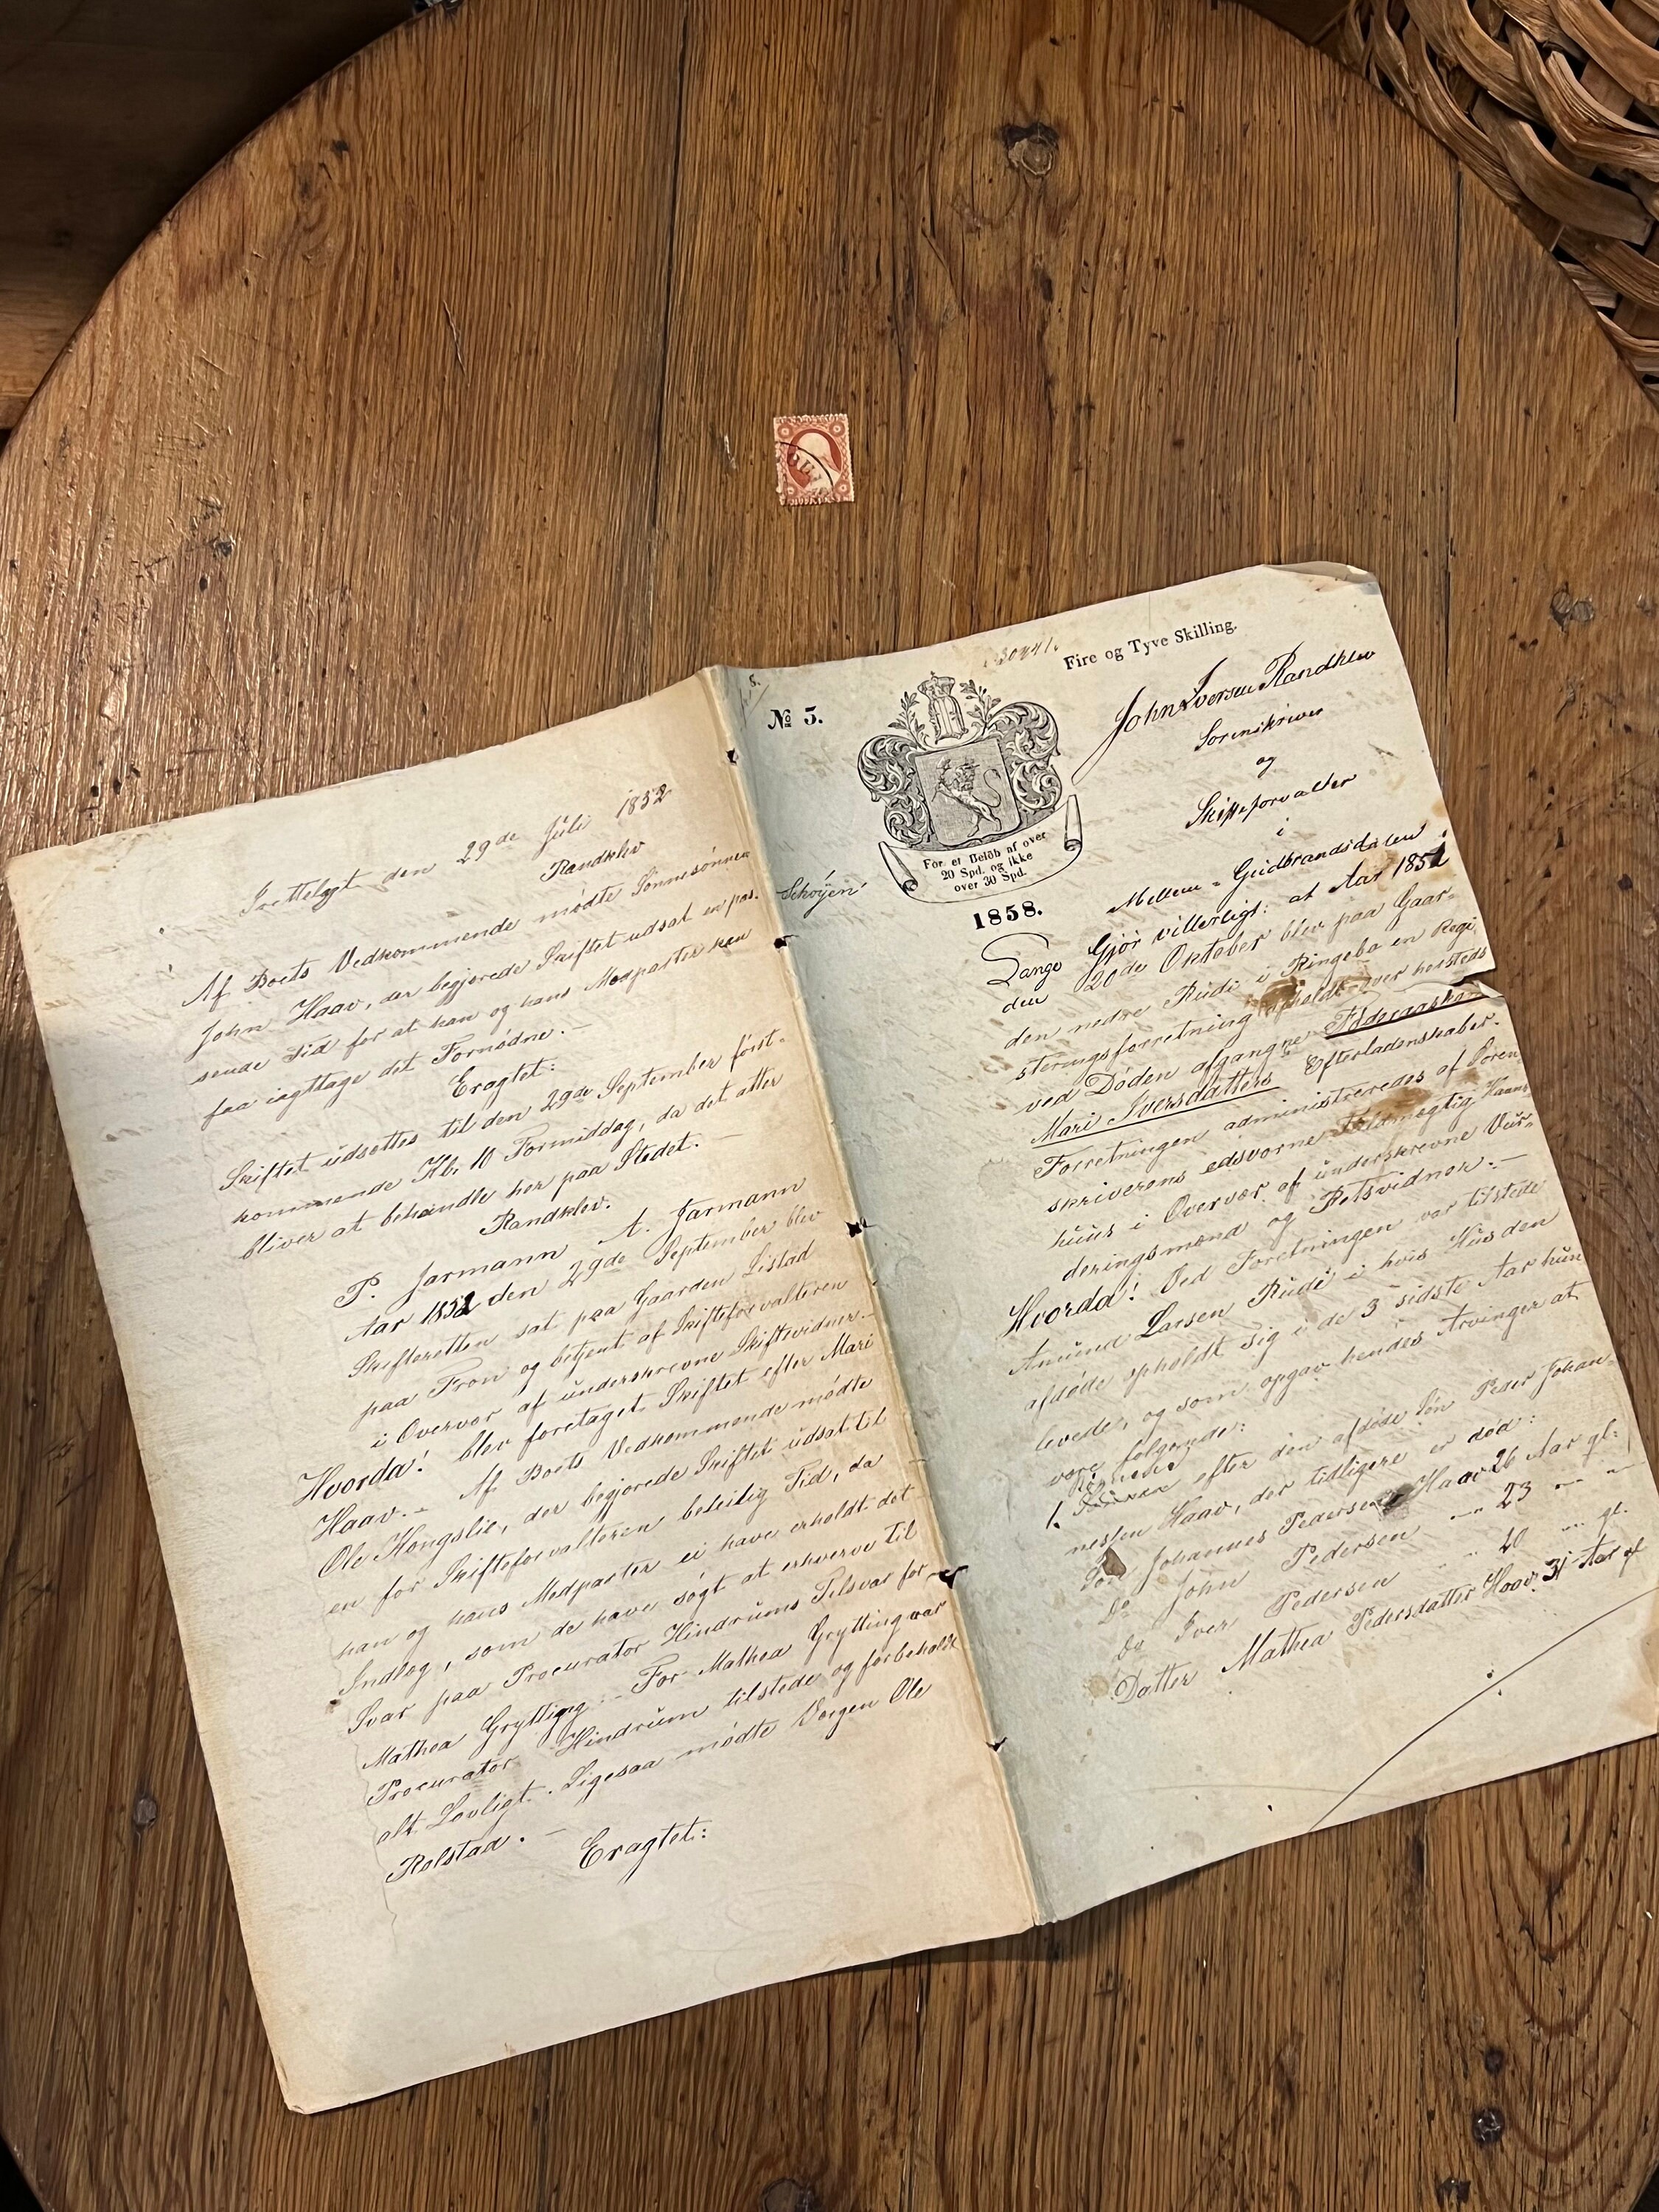 Fremlagt den 29de Juli 1852
Randklev
Af Boets Vedkommende mødte Sønnesønnen
John Haav, der begjerede Skiftet udsat en pas.
sende Tid for at han og hans Medparter kan
faa iagttage det Fornødne. —
Eragtet:
Skiftet udsættes til den 29de September først-
kommende Kl. 10 Formiddag, da det atter
bliver at behandle her paa Stedet. —
Randklev.
P. Jarmann A. Jarmann
Aar 1852 den 29de September blev
Skifteretten sat paa Gaarden Listad
paa Fron og betjent af Skifteforvalteren
i Overvær af underskrevne Skiftevidner. —
Hvorda! blev foretaget Skiftet efter Mari
Haav. — Af Boets Vedkommende mødte
Ole Kongslie, der begjerede Skiftet udsat til
en for Skifteforvalteren beleilig Tid, da
han og hans Medparter ei have erholdt det
Indlæg, som de have søgt at erhverve til
Svar paa Procurator Hindrums Tilsvar for
Mathea Grytting. — For Mathea Grytting var
Procurator Hindrum tilstede og forbeholdt
alt Lovligt. Ligesaa mødte Værgen Ole
Rolstad. —
Eragtet:
8.
№ 5.
30441.
Fire og Tyve Skilling.
For et Beløb af over
20 Spd. og ikke
over 30 Spd.
1858.
Schøyen
John Iversen Randklev
Sorenskriver
og
Skifteforvalter
i
Mellem-Gudbrandsdalen
Gjør vitterligt: at Aar 1851
den 20de Oktober blev paa Gaar-
den nedre Rude i Ringebo en Regi
steringsforretning afholdt over hersteds
ved Døden afgangne Føderaadskone
Mari Iversdatters Efterladenskaber.
Forretningen administreredes af Soren
skriverens edsvorne Fuldmægtig Haans
huus i Overvær af underskrevne Vur-
deringsmænd og Retsvidner. —
Hvorda! Ved Forretningen var tilstede
Amund Larsen Rude i hvis Hus den
afdøde opholdt sig i de 3 sidste Aar hun
levede, og som opgav hendes Arvinger at
være følgende:
1. efter den afdøde Søn Peder Johan-
nessen Haav, der tidligere er død:
Søn Johannes Pedersen Haav 26 Aar gl:
Do John Pedersen — 23 — —
Do Iver Pedersen — 20 — gl.
Datter Mathea Pedersdatter Haav 31 Aar gl